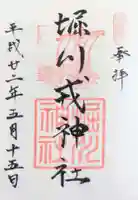 奉拝
堀川戎神社
平成廿二年五月十五日